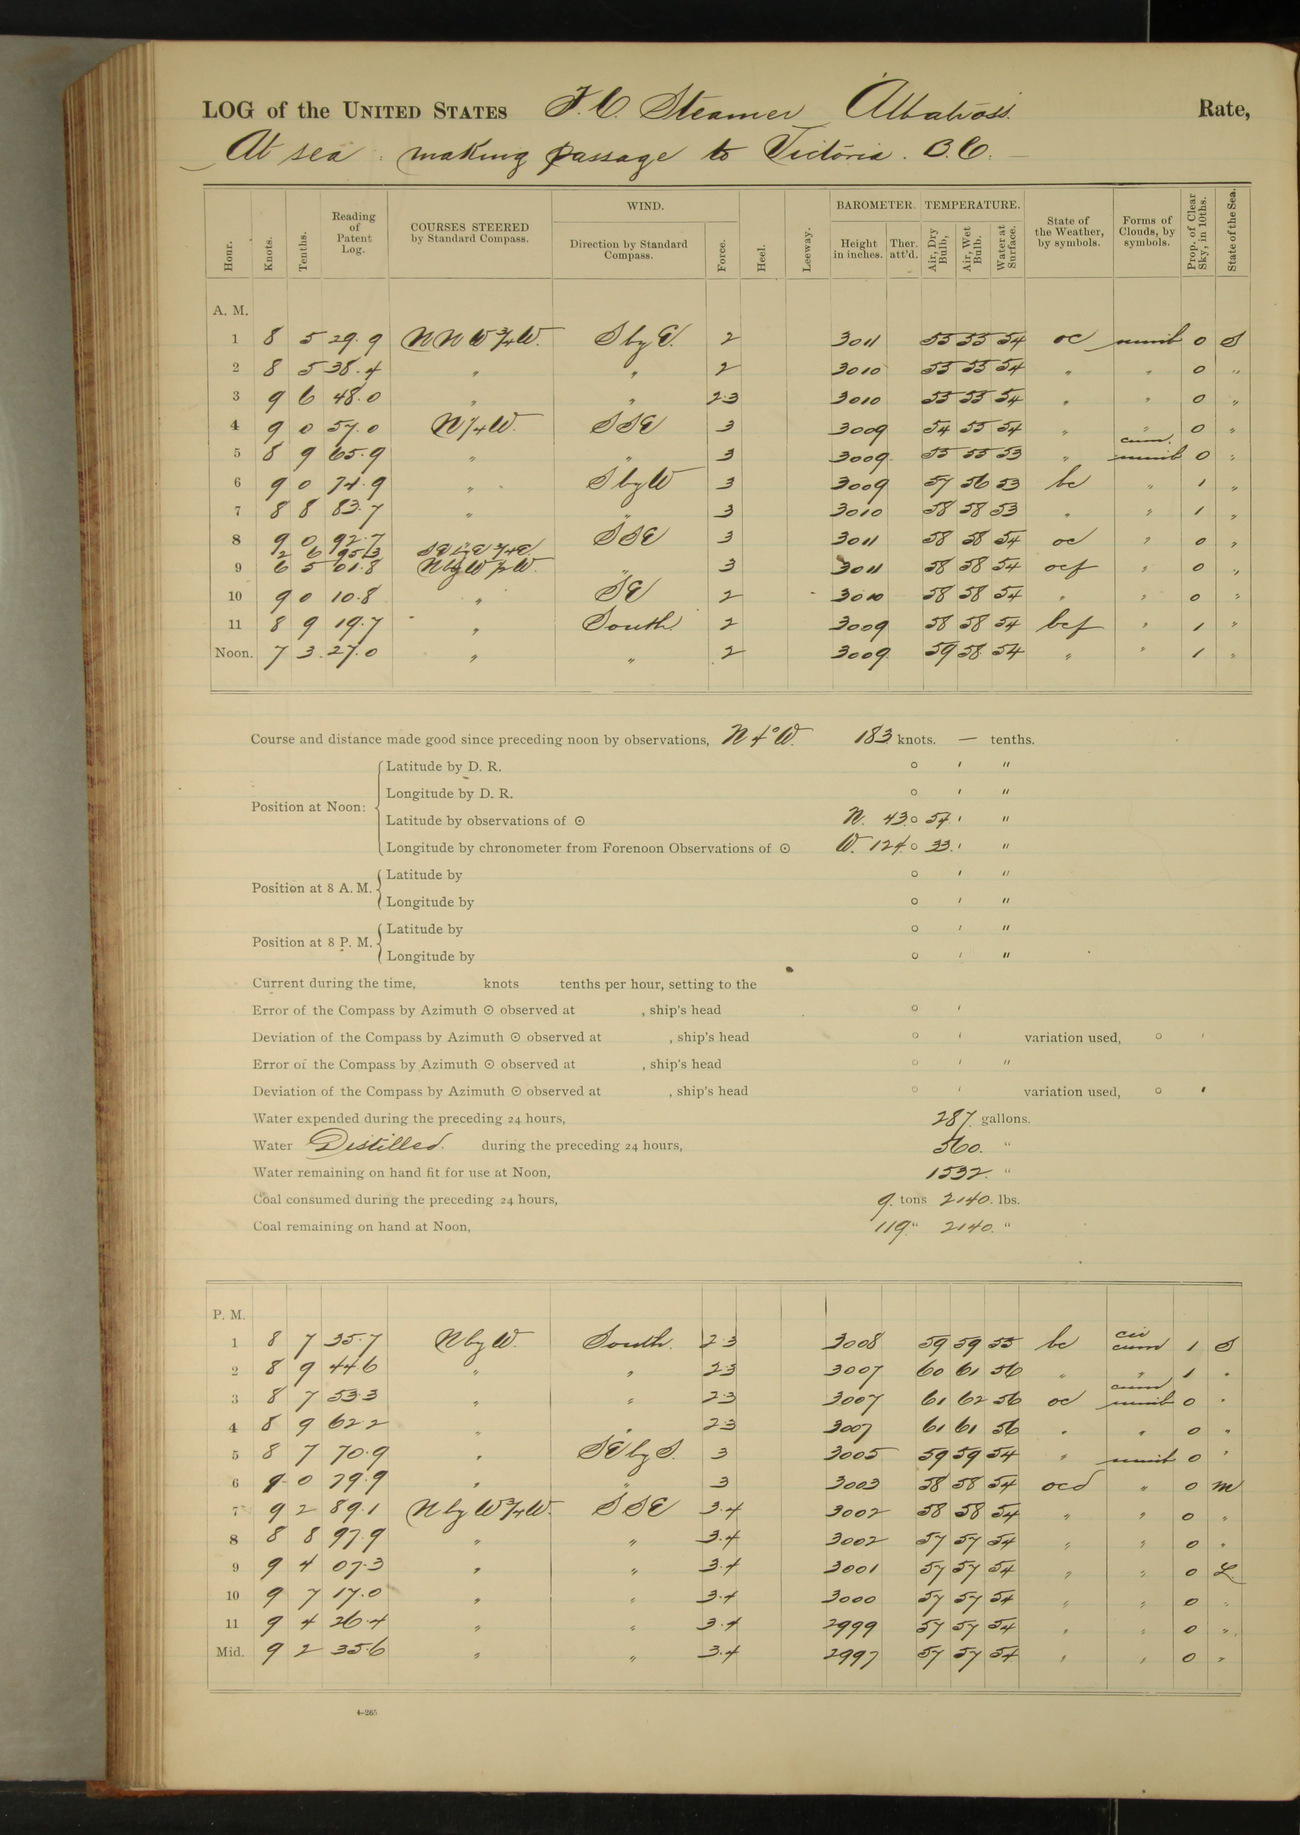 LOG of the UNITED STATES F.C. Steamer Albatross Rate,
At sea : making passage to Victoria. B.C.
Hour. Knots. Tenths. Reading of Patent Log. COURSES STEERED by Standard Compass. WIND. Direction by Standard Compass. Force. Heel. Leeway. BAROMETER. Height in inches. Ther. att'd. TEMPERATURE. Air, Dry Bulb, Air, Wet Bulb. Water at Surface. State of the Weather, by symbols. Forms of Clouds, by symbols. Prop. of Clear Sky, in 10ths. State of the Sea.
A. M.
1 8 5 29.9 NNW 3/4 W. S by E. 2 3011 55 55 54 oc nimb 0 S
2 8 5 38.4 " " 2 3010 55 55 54 " " 0 "
3 9 6 48.0 " " 2.3 3010 55 55 54 " " 0 "
4 9 0 57.0 N 1/4 W. SSE 3 3009 54 55 54 " " 0 "
5 8 9 65.9 " " 3 3009 55 55 53 " cum. nimb 0 "
6 9 0 74.9 " S by W 3 3009 57 56 53 bc " 1 "
7 8 8 83.7 " " 3 3010 58 58 53 " " 1 "
8 9 0 92.7 SSE 3 3011 58 58 54 oc " 0 "
2 6 95.3
9 6 5 01.8 N by W 1/2 W. " 3 3011 58 58 54 ocf " 0 "
10 9 0 10.8 " SE 2 3010 58 58 54 " " 0 "
11 8 9 19.7 " South 2 3009 58 58 54 bcf " 1 "
Noon. 7 3 27.0 " " 2 3009 59 58 54 " " 1 "
Course and distance made good since preceding noon by observations, N 4° W. 183 knots. — tenths.
Position at Noon:
Latitude by D. R. ° ′ ″
Longitude by D. R. ° ′ ″
Latitude by observations of ☉ N. 43° 54′ ″
Longitude by chronometer from Forenoon Observations of ☉ W. 124° 33′ ″
Position at 8 A. M.
Latitude by ° ′ ″
Longitude by ° ′ ″
Position at 8 P. M.
Latitude by ° ′ ″
Longitude by ° ′ ″
Current during the time, knots tenths per hour, setting to the
Error of the Compass by Azimuth ☉ observed at , ship's head ° ′
Deviation of the Compass by Azimuth ☉ observed at , ship's head ° ′ variation used, ° ′
Error of the Compass by Azimuth ☉ observed at , ship's head ° ′ ″
Deviation of the Compass by Azimuth ☉ observed at , ship's head ° ′ variation used, ° ′
Water expended during the preceding 24 hours, 287 gallons.
Water Distilled. during the preceding 24 hours, 560. "
Water remaining on hand fit for use at Noon, 1532. "
Coal consumed during the preceding 24 hours, 9. tons 2140. lbs.
Coal remaining on hand at Noon, 119 " 2140. "
P. M.
1 8 7 35.7 N by W. South. 2.3 3008 59 59 55 bc cir cum 1 S
2 8 9 44.6 " " 2.3 3007 60 61 56 " " 1 "
3 8 7 53.3 " " 2.3 3007 61 62 56 oc cum nimb 0 "
4 8 9 62.2 " " 2.3 3007 61 61 56 " " 0 "
5 8 7 70.9 " SE by S. 3 3005 59 59 54 " nimb 0 "
6 9 0 79.9 " " 3 3003 58 58 54 ocd " 0 M
7 9 2 89.1 N by W 3/4 W. SSE 3.4 3002 58 58 54 " " 0 "
8 8 8 97.9 " " 3.4 3002 57 57 54 " " 0 "
9 9 4 07.3 " " 3.4 3001 57 57 54 " " 0 L
10 9 7 17.0 " " 3.4 3000 57 57 54 " " 0 "
11 9 4 26.4 " " 3.4 2999 57 57 54 " " 0 "
Mid. 9 2 35.6 " " 3.4 2997 57 57 54 " " 0 "
4—265